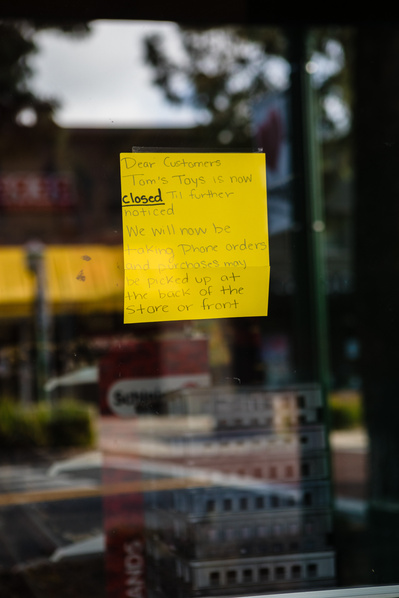 Dear Customers
Tom's Toys is now
closed Til further
noticed
We will now be
taking Phone orders
and purchases may
be picked up at
the back of the
store or front